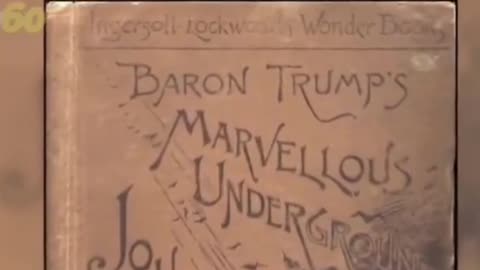 60
Ingersoll Lockwood's Wonder Books
BARON TRUMP'S
MARVELLOUS
UNDERGROUND
JOU